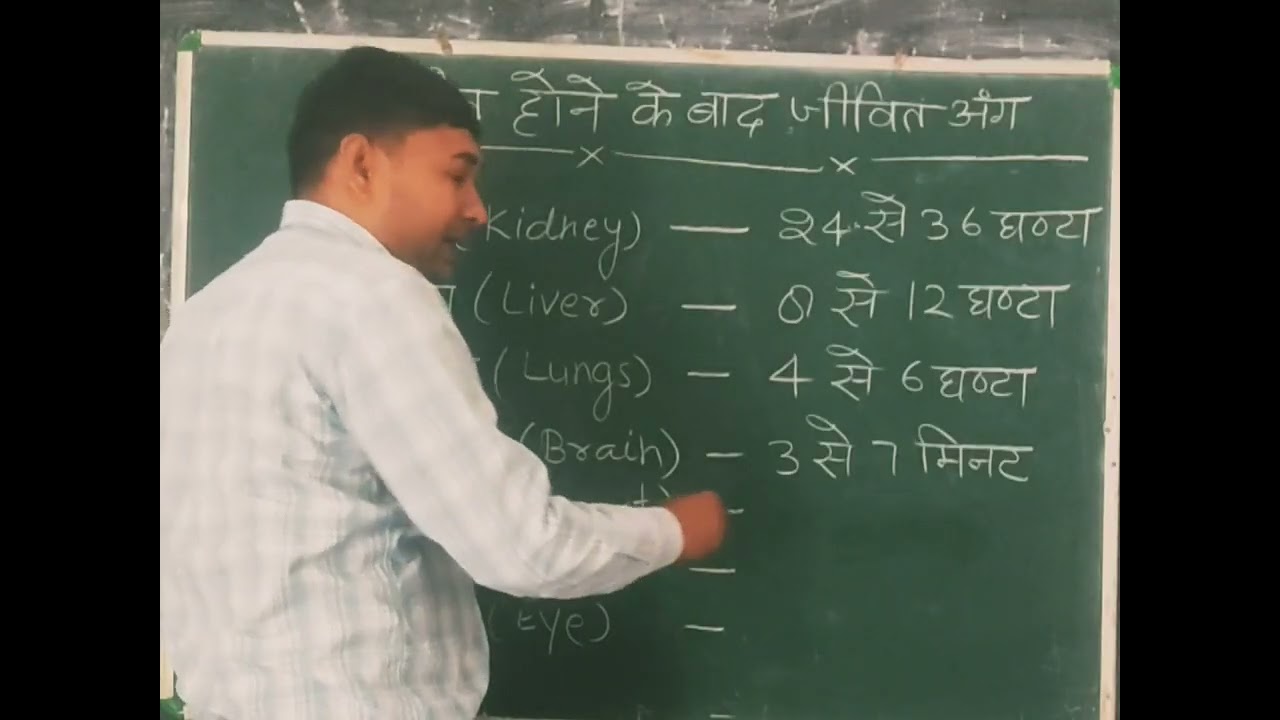 होने के बाद जीवित अंग
(Kidney) — 24 से 36 घण्टा
(Liver) — से 12 घण्टा
(Lungs) — 4 से 6 घण्टा
(Brain) — 3 से 7 मिनट
(Eye) —